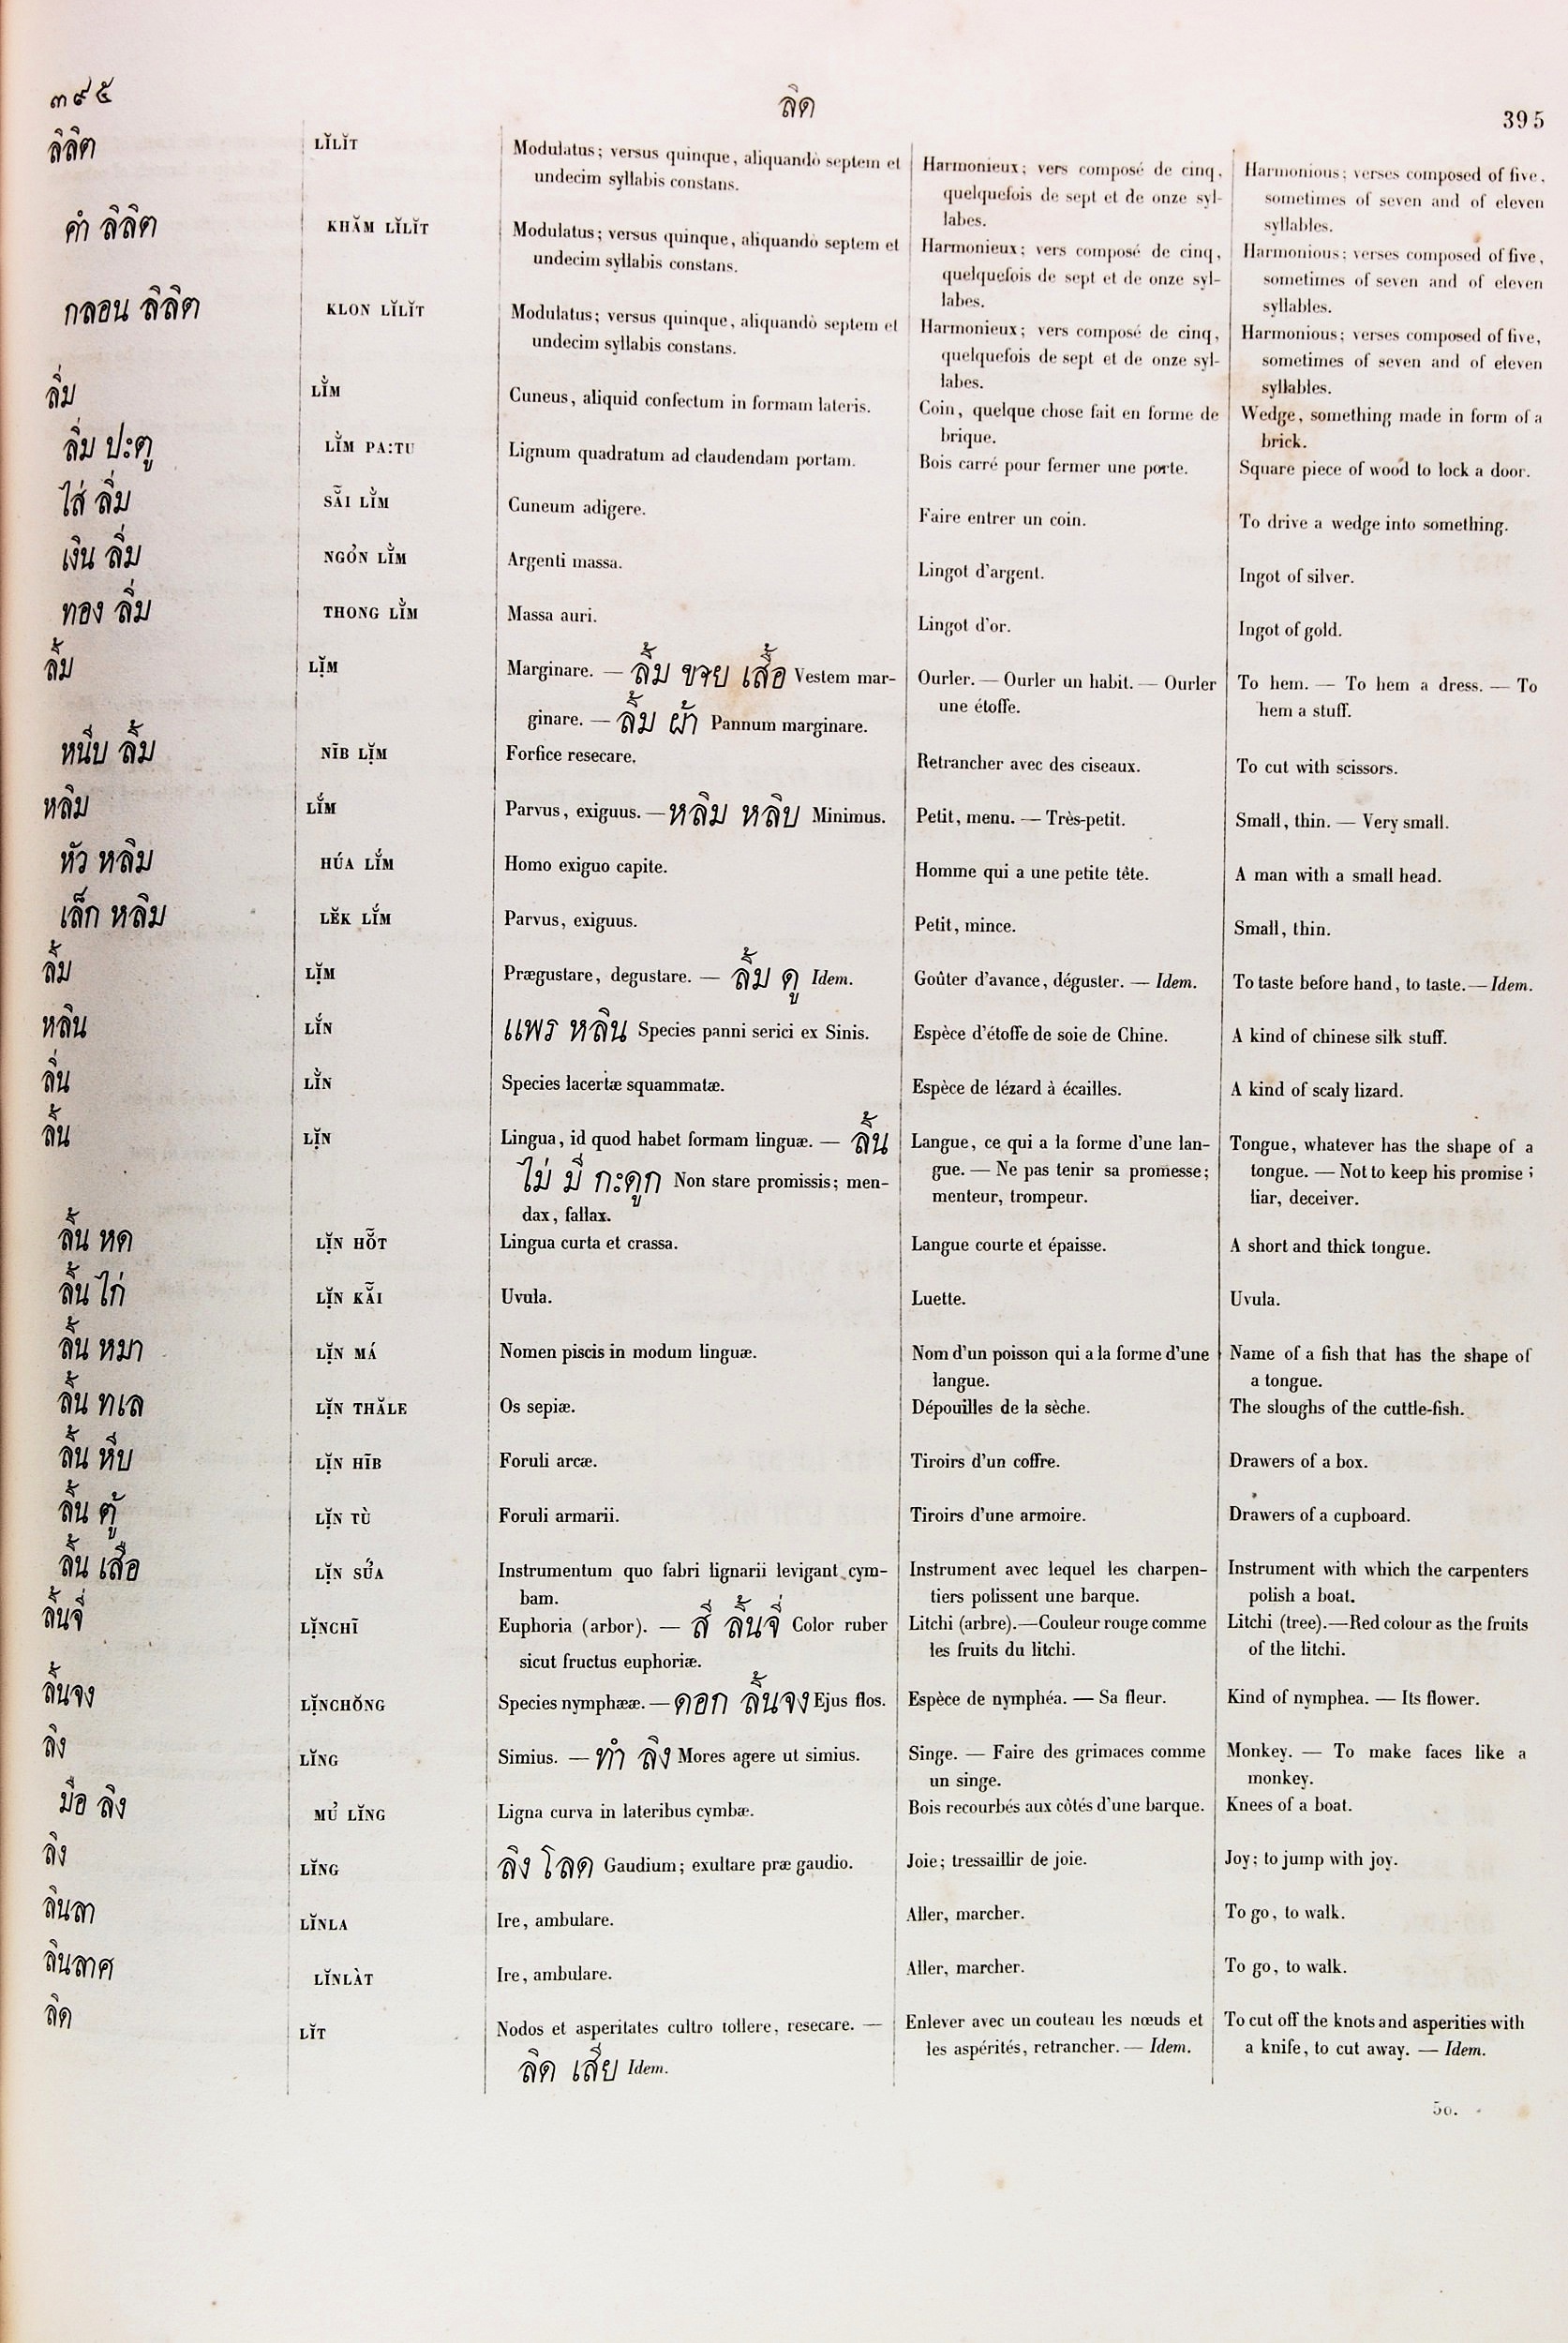 ๓๙๕ ลิด 395
ลิลิต LĬLĬT Modulatus; versus quinque, aliquandò septem et Harmonieux; vers composé de cinq, Harmonious; verses composed of five,
undecim syllabis constans. quelquefois de sept et de onze syl- sometimes of seven and of eleven
labes. syllables.
คำ ลิลิต KHĂM LĬLĬT Modulatus; versus quinque, aliquandò septem et Harmonieux; vers composé de cinq, Harmonious; verses composed of five,
undecim syllabis constans. quelquefois de sept et de onze syl- sometimes of seven and of eleven
labes. syllables.
กลอน ลิลิต KLON LĬLĬT Modulatus; versus quinque, aliquandò septem et Harmonieux; vers composé de cinq, Harmonious; verses composed of five,
undecim syllabis constans. quelquefois de sept et de onze syl- sometimes of seven and of eleven
labes. syllables.
ลิ่ม LĬ̀M Cuneus, aliquid confectum in formam lateris. Coin, quelque chose fait en forme de Wedge, something made in form of a
brique. brick.
ลิ่ม ปะตู LĬ̀M PA:TU Lignum quadratum ad claudendam portam. Bois carré pour fermer une porte. Square piece of wood to lock a door.
ไส่ ลิ่ม SẴI LĬ̀M Cuneum adigere. Faire entrer un coin. To drive a wedge into something.
เงิน ลิ่ม NGO̓N LĬ̀M Argenti massa. Lingot d'argent. Ingot of silver.
ทอง ลิ่ม THONG LĬ̀M Massa auri. Lingot d'or. Ingot of gold.
ลิ้ม LỊ̆M Marginare. — ลิ้ม ขาย เสื้อ Vestem mar- Ourler. — Ourler un habit. — Ourler To hem. — To hem a dress. — To
ginare. — ลิ้ม ผ้า Pannum marginare. une étoffe. hem a stuff.
หนีบ ลิ้ม NĪB LỊ̆M Forfice resecare. Retrancher avec des ciseaux. To cut with scissors.
หลิม LĬ́M Parvus, exiguus. — หลิม หลิบ Minimus. Petit, menu. — Très-petit. Small, thin. — Very small.
หัว หลิม HÚA LĬ́M Homo exiguo capite. Homme qui a une petite tête. A man with a small head.
เล็ก หลิม LĔK LĬ́M Parvus, exiguus. Petit, mince. Small, thin.
ลิ้ม LỊ̆M Prægustare, degustare. — ลิ้ม ดู Idem. Goûter d'avance, déguster. — Idem. To taste before hand, to taste. — Idem.
หลิน LĬ́N แพร หลิน Species panni serici ex Sinis. Espèce d'étoffe de soie de Chine. A kind of chinese silk stuff.
ลิ่น LĬ̀N Species lacertæ squammatæ. Espèce de lézard à écailles. A kind of scaly lizard.
ลิ้น LỊ̆N Lingua, id quod habet formam linguæ. — ลิ้น Langue, ce qui a la forme d'une lan- Tongue, whatever has the shape of a
ไม่ มี กะดูก Non stare promissis; men- gue. — Ne pas tenir sa promesse; tongue. — Not to keep his promise;
dax, fallax. menteur, trompeur. liar, deceiver.
ลิ้น หด LỊ̆N HŎ̃T Lingua curta et crassa. Langue courte et épaisse. A short and thick tongue.
ลิ้น ไก่ LỊ̆N KẴI Uvula. Luette. Uvula.
ลิ้น หมา LỊ̆N MÁ Nomen piscis in modum linguæ. Nom d'un poisson qui a la forme d'une Name of a fish that has the shape of
langue. a tongue.
ลิ้น ทเล LỊ̆N THĂLE Os sepiæ. Dépouilles de la sèche. The sloughs of the cuttle-fish.
ลิ้น หีบ LỊ̆N HĪB Foruli arcæ. Tiroirs d'un coffre. Drawers of a box.
ลิ้น ตู้ LỊ̆N TÙ Foruli armarii. Tiroirs d'une armoire. Drawers of a cupboard.
ลิ้น เสือ LỊ̆N SỨA Instrumentum quo fabri lignarii levigant cym- Instrument avec lequel les charpen- Instrument with which the carpenters
bam. tiers polissent une barque. polish a boat.
ลิ้นจี่ LỊ̆NCHĪ Euphoria (arbor). — สี ลิ้นจี่ Color ruber Litchi (arbre).—Couleur rouge comme Litchi (tree).—Red colour as the fruits
sicut fructus euphoriæ. les fruits du litchi. of the litchi.
ลิ้นจง LỊ̆NCHŎNG Species nymphææ. — ดอก ลิ้นจง Ejus flos. Espèce de nymphéa. — Sa fleur. Kind of nymphea. — Its flower.
ลิง LĬNG Simius. — ทำ ลิง Mores agere ut simius. Singe. — Faire des grimaces comme Monkey. — To make faces like a
un singe. monkey.
มือ ลิง MU̓ LĬNG Ligna curva in lateribus cymbæ. Bois recourbés aux côtés d'une barque. Knees of a boat.
ลิง LĬNG ลิง โลด Gaudium; exultare præ gaudio. Joie; tressaillir de joie. Joy; to jump with joy.
ลินลา LĬNLA Ire, ambulare. Aller, marcher. To go, to walk.
ลินลาศ LĬNLÀT Ire, ambulare. Aller, marcher. To go, to walk.
ลิด LĬT Nodos et asperitates cultro tollere, resecare. — Enlever avec un couteau les nœuds et To cut off the knots and asperities with
ลิด เสีย Idem. les aspérités, retrancher. — Idem. a knife, to cut away. — Idem.
50.